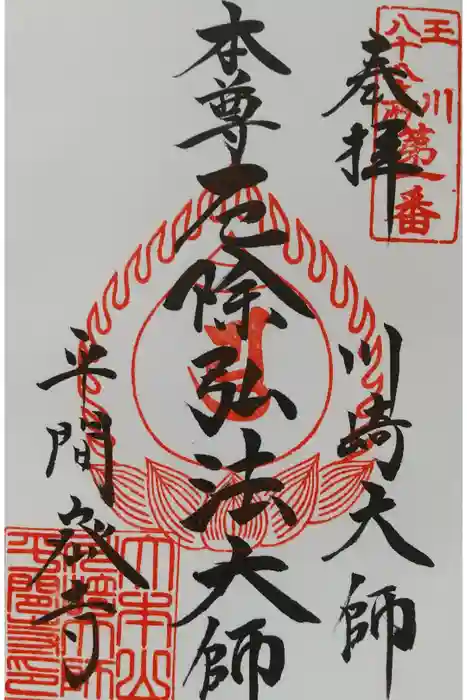 奉拝
王川
八十八ヶ所
第一番
川崎大師
本尊厄除弘法大師
平間寺
大本山